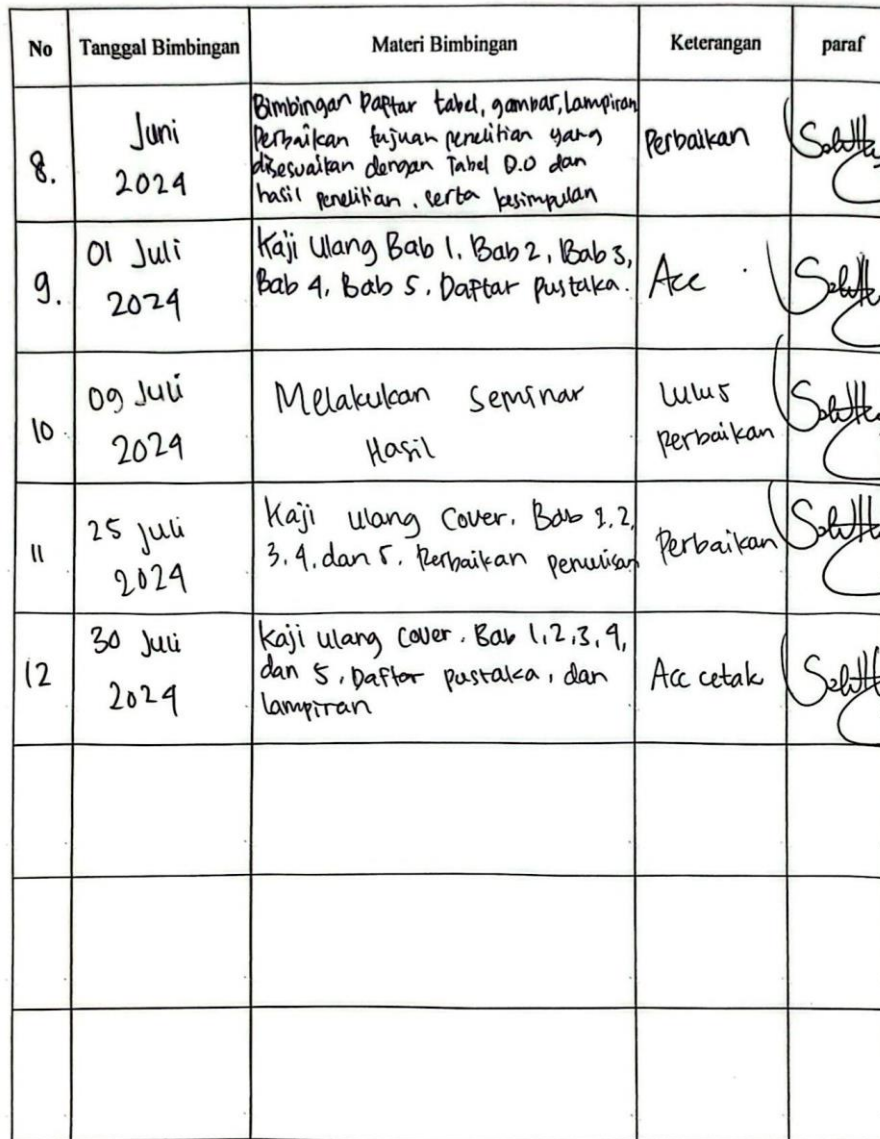 No Tanggal Bimbingan Materi Bimbingan Keterangan paraf
8.
Juni
2024
Bimbingan Daftar tabel, gambar, Lampiran
Perbaikan tujuan penelitian yang
disesuaikan dengan Tabel D.O dan
hasil penelitian, serta kesimpulan
Perbaikan
9.
01 Juli
2024
Kaji Ulang Bab 1, Bab 2, Bab 3,
Bab 4, Bab 5, Daftar Pustaka.
Acc
10
09 Juli
2024
Melakukan Seminar
Hasil
Lulus
perbaikan
11
25 Juli
2024
Kaji ulang Cover, Bab 1, 2,
3, 4, dan 5, Perbaikan penulisan
Perbaikan
12
30 Juli
2024
Kaji ulang cover, Bab 1, 2, 3, 4,
dan 5, Daftar pustaka, dan
lampiran
Acc cetak